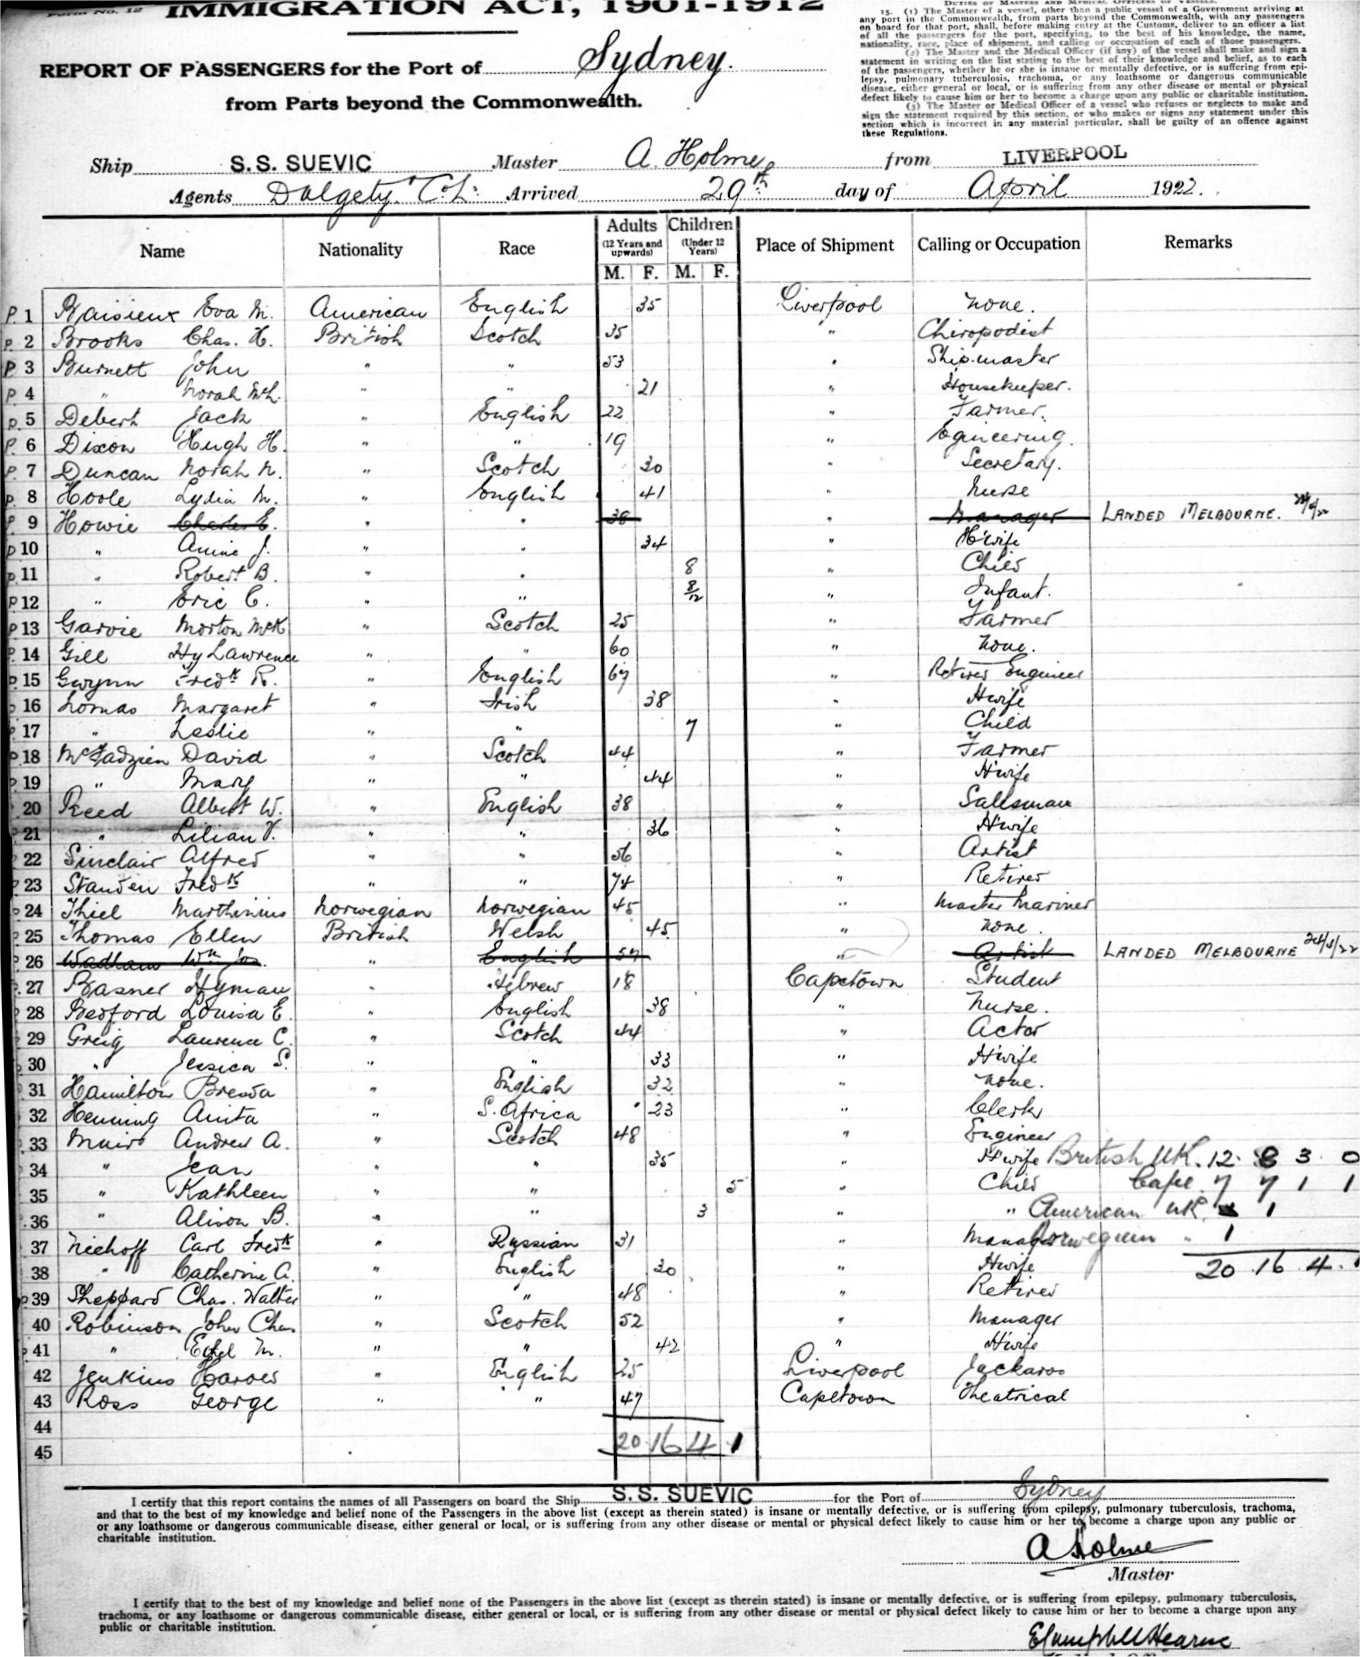 Form No. 12
IMMIGRATION ACT, 1901-1912
REPORT OF PASSENGERS for the Port of Sydney.
from Parts beyond the Commonwealth.
DUTIES OF MASTERS AND MEDICAL OFFICERS OF VESSELS.
15. (1) The Master of a vessel, other than a public vessel of a Government arriving at
any port in the Commonwealth, from parts beyond the Commonwealth, with any passengers
on board for that port, shall, before making entry at the Customs, deliver to an officer a list
of all the passengers for the port, specifying, to the best of his knowledge, the name,
nationality, race, place of shipment, and calling or occupation of each of those passengers.
(2) The Master and the Medical Officer (if any) of the vessel shall make and sign a
statement in writing on the list stating to the best of their knowledge and belief, as to each
of the passengers, whether he or she is insane or mentally defective, or is suffering from epi-
lepsy, pulmonary tuberculosis, trachoma, or any loathsome or dangerous communicable
disease, either general or local, or is suffering from any other disease or mental or physical
defect likely to cause him or her to become a charge upon any public or charitable institution.
(3) The Master or Medical Officer of a vessel who refuses or neglects to make and
sign the statement required by this section, or who makes or signs any statement under this
section which is incorrect in any material particular, shall be guilty of an offence against
these Regulations.
Ship S.S. SUEVIC Master A. Holme from LIVERPOOL
Agents Dalgety & Co. L: Arrived 29th day of April 1922.
Name Nationality Race Adults (12 Years and upwards) Children (Under 12 Years) Place of Shipment Calling or Occupation Remarks
M. F. M. F.
P. 1 Eva M. American English 35 Liverpool none.
P. 2 Brooks Chas. H. British Scotch 35 " Chiropodist
P. 3 Burnett John " " 53 " Shipmaster
P. 4 " Norah McL. " " 21 " Housekeeper.
P. 5 Debert Jack " English 22 " Farmer.
P. 6 Dixon Hugh H. " " 19 " Egineering.
P. 7 Duncan Norah N. " Scotch 30 " Secretary.
P. 8 Hoole Lydia M. " English 41 " Nurse
P. 9 Howie Charles E. " " 38 " Manager LANDED MELBOURNE.
P 10 " Annie J. " " 34 " H'wife
P 11 " Robert B. " " 8 " Child
P 12 " Eric C. " " 8/12 " Infant.
P 13 Garvie Morton McK " Scotch 25 " Farmer
P. 14 Gill Hy Lawrence " " 60 " none.
P. 15 Gwynn Fredk R. " English 67 " Retired Engineer
P 16 Lomas Margaret " Irish 38 " H'wife
P. 17 " Leslie " " 7 " Child
P. 18 McFadzien David " Scotch 44 " Farmer
P. 19 " Mary " " 44 " H'wife
P. 20 Reed Albert W. " English 38 " Salesman
P. 21 " Lilian V. " " 36 " H'wife
P. 22 Sinclair Alfred " " 56 " Artist
P. 23 Standen Fredk " " 74 " Retired
P. 24 Thiel Marthinius Norwegian Norwegian 45 " Master Mariner
P. 25 Thomas Ellen British Welsh 45 " none.
26 Wadham Wm Jos. " English 57 " Artist LANDED MELBOURNE 24/5/22
P. 27 Basner Hyman " Hebrew 18 Capetown Student
P. 28 Bedford Louisa E. " English 38 " Nurse.
29 Greig Laurence C. " Scotch 44 " Actor
P. 30 " Jessica S. " " 33 " H'wife
P. 31 Hamilton Brenda " English 32 " none.
P. 32 Henning Anita " S. Africa 23 " Clerk
P. 33 Muir Andrew A. " Scotch 48 " Engineer
34 " Jean " " 35 " H'wife British UK. 12. 8 3. 0
35 " Kathleen " " 5 " Child Cape 7 7 1 1
36 " Alison B. " " 3 " " American UK. 1
37 Niehoff Carl Fredk " Russian 31 " Manager Norwegian " 1
38 " Catherine A. " English 30 " H'wife 20 16 4. 1
P 39 Sheppard Chas. Walter " " 48 " Retired
40 Robinson John Chas " Scotch 52 " Manager
P. 41 " Ethel M. " " 42 " H'wife
42 Jenkins Harold " English 25 Liverpool Jackaroo
43 Ross George " " 47 Capetown Theatrical
44 20 16 4 1
45
I certify that this report contains the names of all Passengers on board the Ship S. S. SUEVIC for the Port of Sydney
and that to the best of my knowledge and belief none of the Passengers in the above list (except as therein stated) is insane or mentally defective, or is suffering from epilepsy, pulmonary tuberculosis, trachoma,
or any loathsome or dangerous communicable disease, either general or local, or is suffering from any other disease or mental or physical defect likely to cause him or her to become a charge upon any public or
charitable institution.
A Holme
Master
I certify that to the best of my knowledge and belief none of the Passengers in the above list (except as therein stated) is insane or mentally defective, or is suffering from epilepsy, pulmonary tuberculosis,
trachoma, or any loathsome or dangerous communicable disease, either general or local, or is suffering from any other disease or mental or physical defect likely to cause him or her to become a charge upon any
public or charitable institution.
E Campbell Hearne